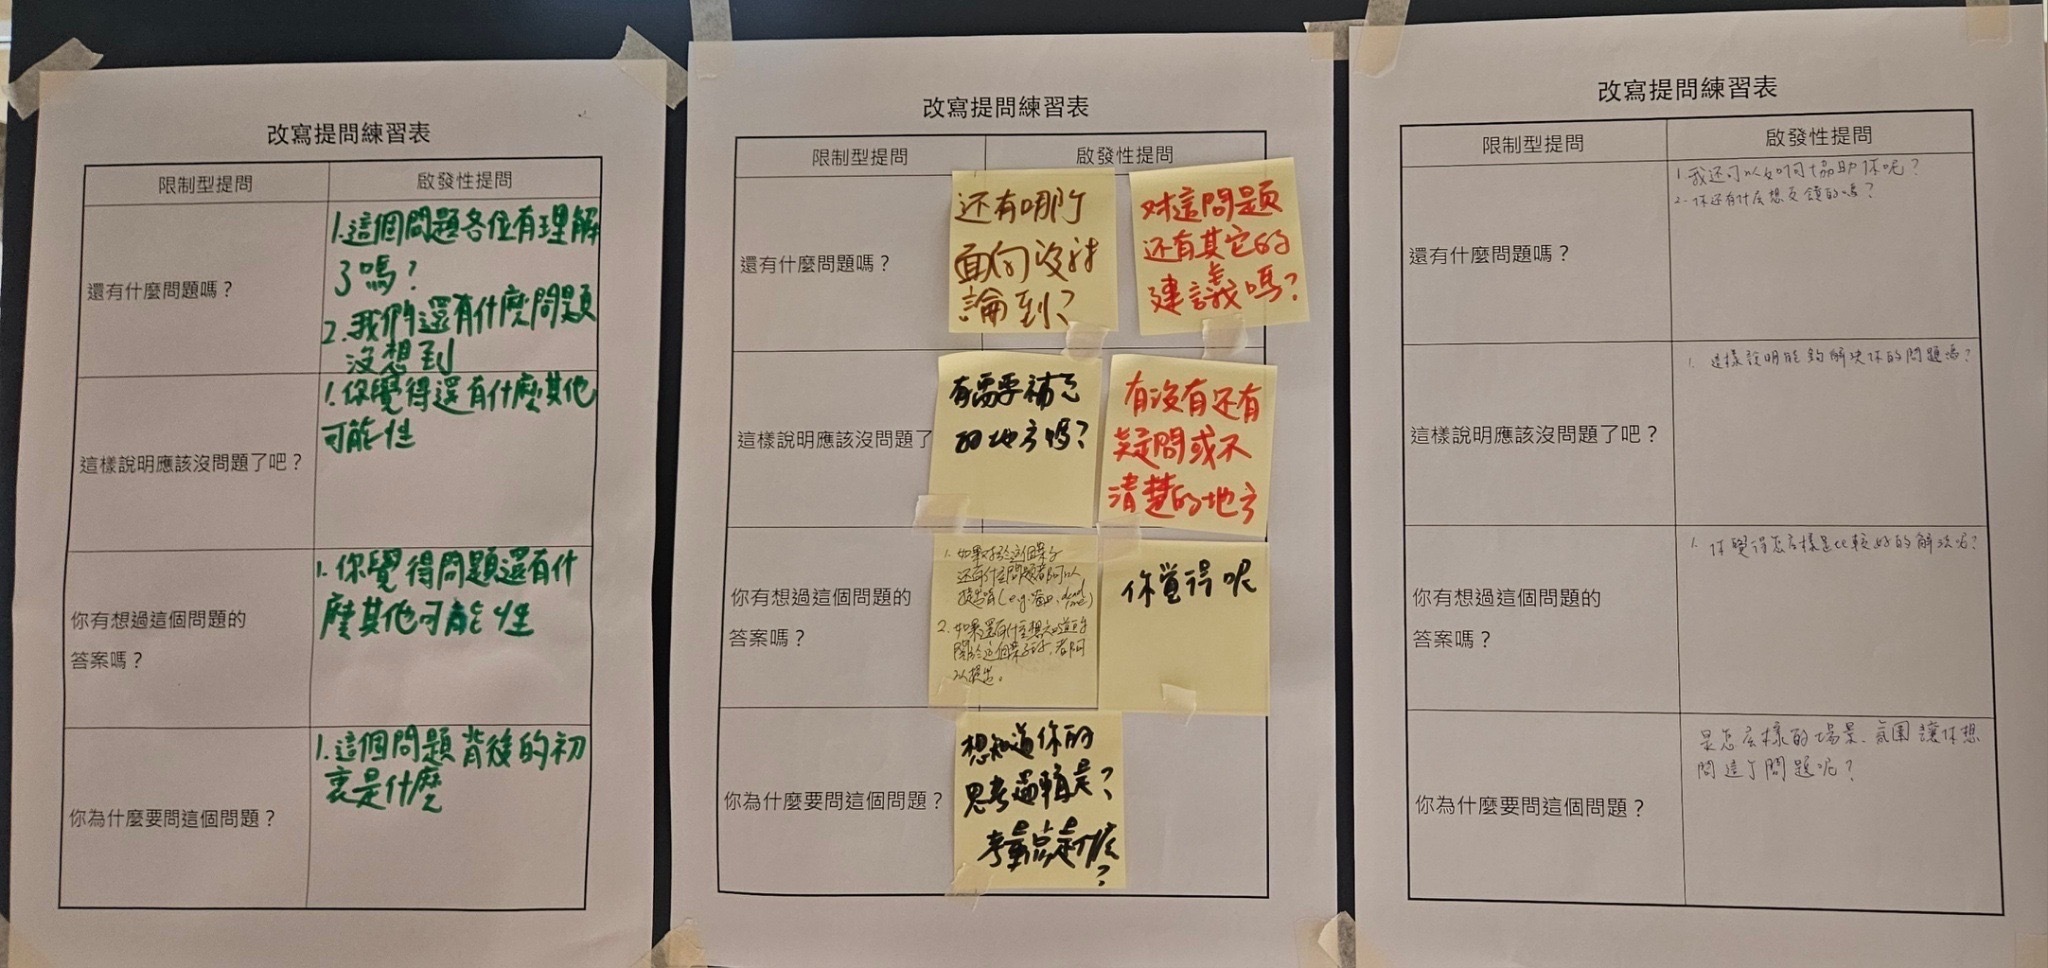 改寫提問練習表
限制型提問
啟發性提問
還有什麼問題嗎？
1.這個問題各位有理解
了嗎？
2.我們還有什麼問題
沒想到
這樣說明應該沒問題了吧？
1.你覺得還有什麼其他
可能性
你有想過這個問題的
答案嗎？
1.你覺得問題還有什
麼其他可能性
你為什麼要問這個問題？
1.這個問題背後的初
衷是什麼
改寫提問練習表
限制型提問
啟發性提問
還有什麼問題嗎？
还有哪些
面向没討
論到？
对這問題
还有其它的
建議嗎？
這樣說明應該沒問題了
有需要補充
的地方嗎？
有沒有还有
疑問或不
清楚的地方
你有想過這個問題的
答案嗎？
1.如果对於這個案子
还有什麼問題都可以
提出唷(e.g.窗口、deadline)
2.如果還有什麼想知道
關於這個案子的，都可
以提出。
你覚得呢
你為什麼要問這個問題？
想知道你的
思考邏輯是？
考量点是什麼
？
改寫提問練習表
限制型提問
啟發性提問
還有什麼問題嗎？
1.我还可以如何協助你呢？
2.你还有什么想反饋的嗎？
這樣說明應該沒問題了吧？
1.這樣說明能夠解決你的問題嗎？
你有想過這個問題的
答案嗎？
1.你覺得怎么樣是比較好的解決呢？
你為什麼要問這個問題？
是怎么樣的場景、氛圍讓你想
問這个問題呢？